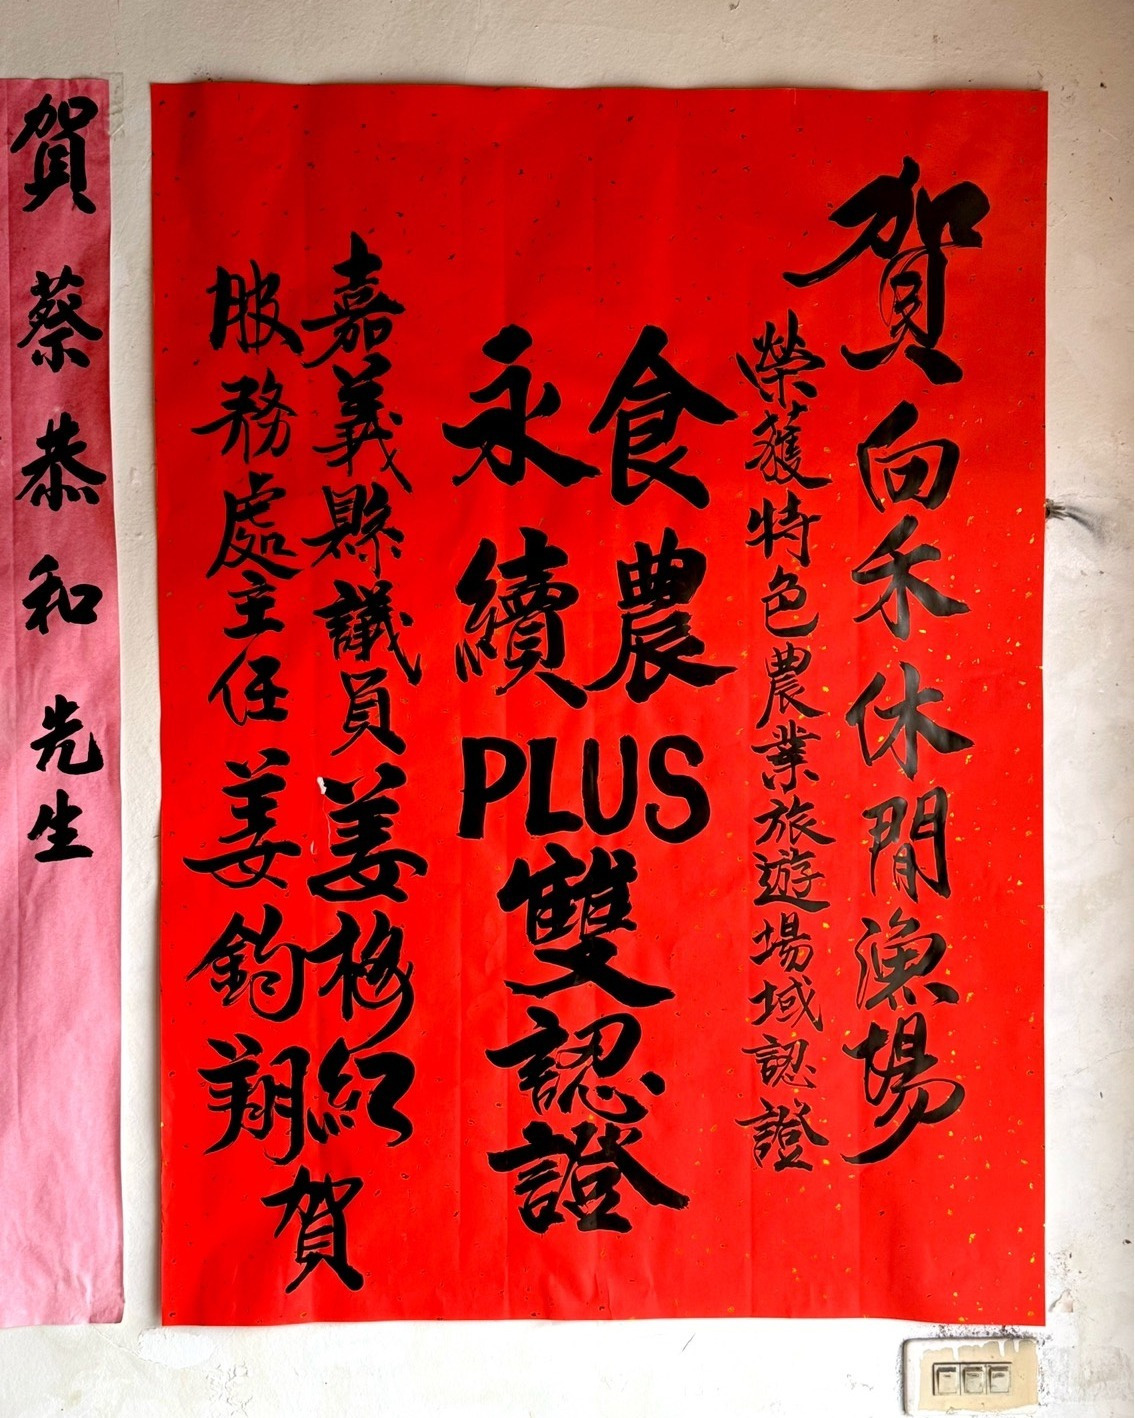 賀向禾休閒漁場
榮獲特色農業旅遊場域認證
食農
永續
PLUS
雙認證
嘉義縣議員姜紅
服務處主任姜鈞翔
賀
賀蔡恭和先生